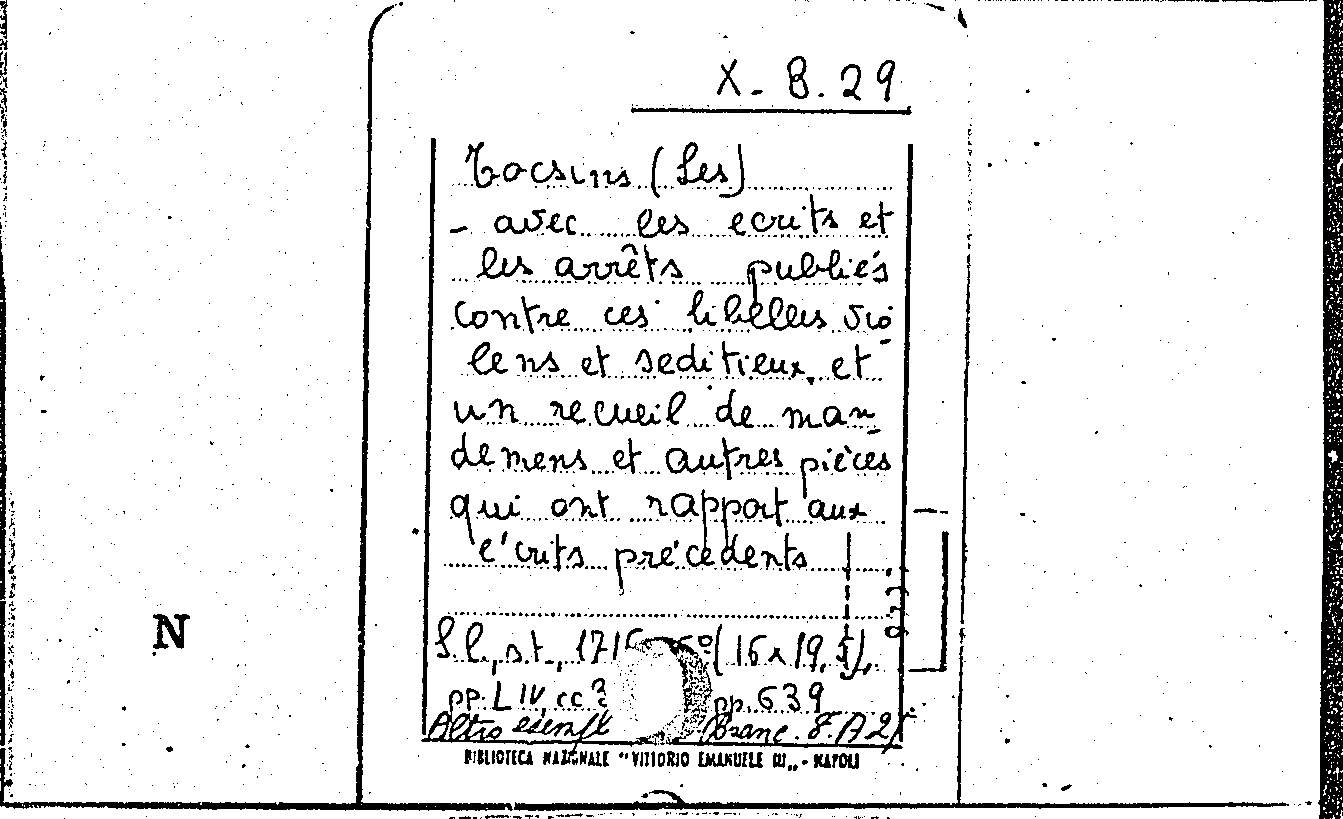 X - 8.29
Tocsins (Les)
- avec les ecrits et
les arrêts publiés
contre ces libelles vio-
lens et seditieux, et
un recueil de man-
demens et autres pièces
qui ont rapport aux
écrits précédents
S.l., s.t., 1716 (16 x 19,5),
pp. LIV, cc pp. 639
Altro Branc. 8. A 2
BIBLIOTECA NAZIONALE "VITTORIO EMANUELE III" - NAPOLI
N